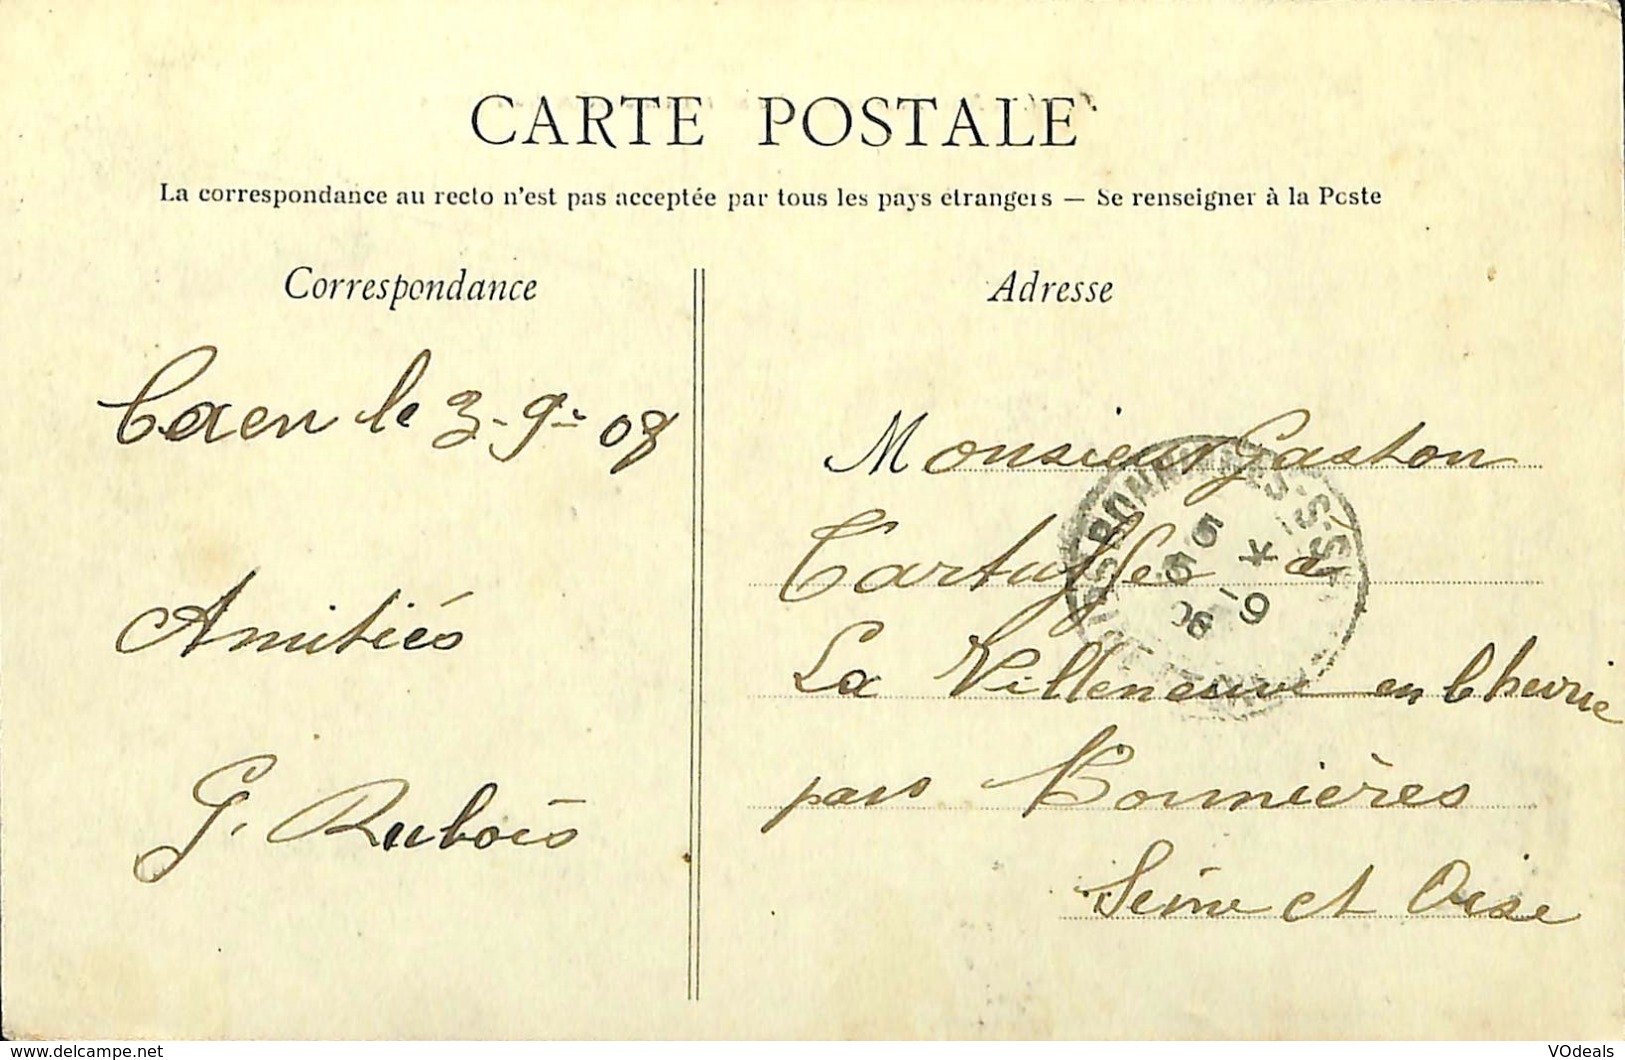 CARTE POSTALE
La correspondance au recto n'est pas acceptée par tous les pays étrangers — Se renseigner à la Poste
Correspondance
Caen le 3-9re 08
Amitiés
G. Dubois
Adresse
Monsieur Gaston
Tartuffes à
La Villeneuve en Chevrie
par Bonnières
Seine et Oise
BONNIÈRES-S-S
5
*
-9
08
www.delcampe.net
VOdeals